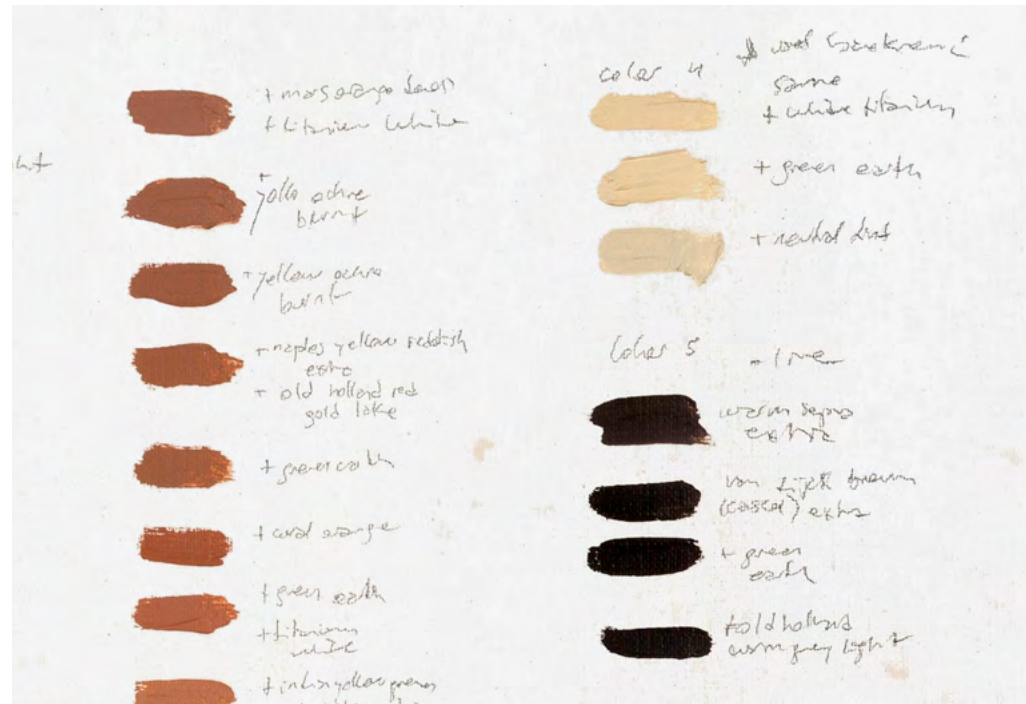 + mars orange
+ titanium white
+
yello ochre
burnt
+ yellow ochre
burnt
+ naples yellow reddish
extra
+ old holland red
gold lake
+ green earth
+ coral orange
+ green earth
+ titanium
white
+ indian yellow green
color 4
same
+ white titanium
+ green earth
+ neutral tint
Color 5
warm sepia
extra
van dijck brown
(cassel) extra
+ green
earth
+ old holland
warm grey light